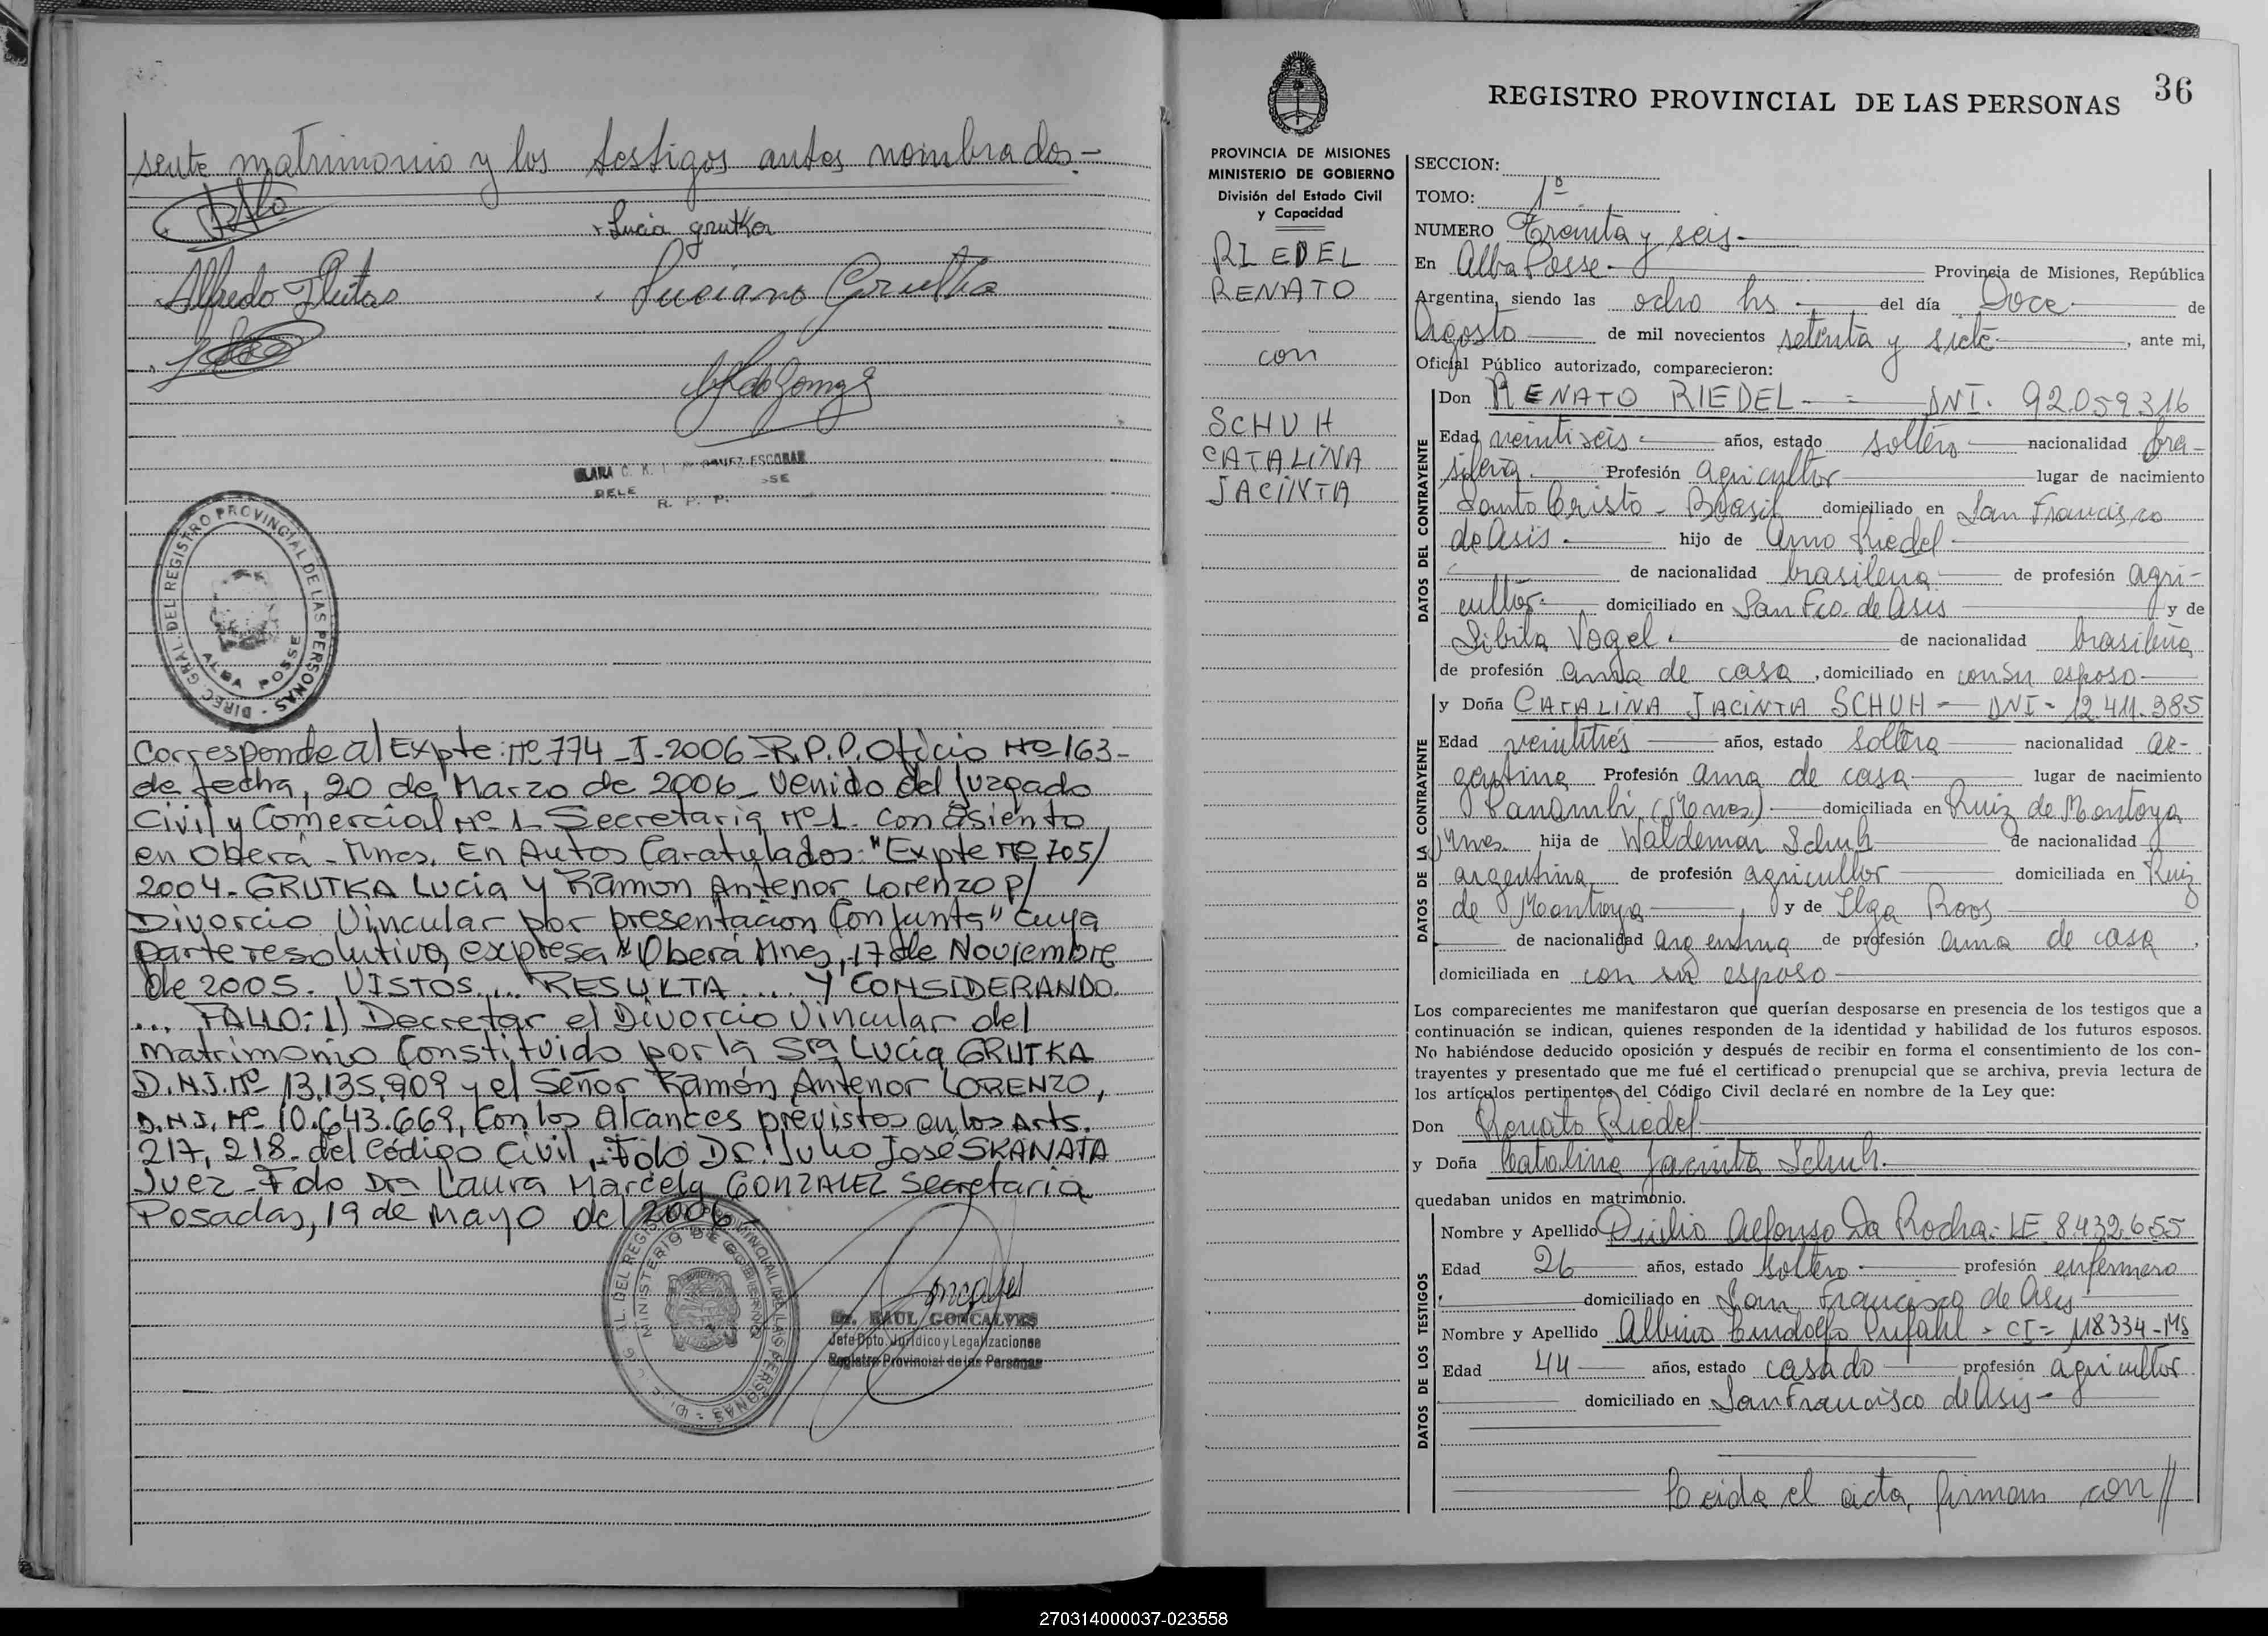 sente matrimonio y los testigos antes nombrados.-
Lucia grutka
Alfredo
Luciano Grutka
ESCOBAR
R. P. P.
DIREC. GRAL. DEL REGISTRO PROVINCIAL DE LAS PERSONAS -
ALBA POSSE
Corresponde al Expte: Nº 774-J-2006-R.P.P. Oficio Nº 163-
de fecha, 20 de Marzo de 2006- Venido del Juzgado
Civil y Comercial Nº 1- Secretaria Nº 1. con Asiento
en Oberá - Mnes. En Autos Caratulados: "Expte Nº 705/
2004- GRUTKA Lucia y Ramon Antenor Lorenzo p/
Divorcio Vincular por presentacion Conjunta" cuya
parte resolutiva expresa "Oberá Mnes, 17 de Noviembre
de 2005. VISTOS... RESULTA .... Y CONSIDERANDO.
... FALLO: 1) Decretar el Divorcio Vincular del
matrimonio Constituido por la Sra Lucia GRUTKA
D.N.I. Nº 13.135.909 y el Señor Ramón Antenor LORENZO,
D.N.I. Nº 10.643.669, con los alcances previstos en los Arts.
217, 218- del Código Civil,- Fdo Dr. Julio José SKANATA
Juez - Fdo Dra Laura Marcela GONZALEZ Secretaria
Posadas, 19 de Mayo del 2006-
MINISTERIO DE GOBIERNO
Dr. RAUL GONCALVES
Jefe Dpto. Jurídico y Legalizaciones
Registro Provincial de las Personas
36
REGISTRO PROVINCIAL DE LAS PERSONAS
PROVINCIA DE MISIONES
MINISTERIO DE GOBIERNO
División del Estado Civil
y Capacidad
RIEDEL
RENATO
con
SCHUH
CATALINA
JACINTA
SECCION:
TOMO: 1º
NUMERO Treinta y seis-
En Alba Posse- Provincia de Misiones, República
Argentina, siendo las ocho hs del día Doce de
Agosto de mil novecientos setenta y siete , ante mi,
Oficial Público autorizado, comparecieron:
DATOS DEL CONTRAYENTE
Don RENATO RIEDEL - DNI. 92.059.316
Edad veintiseis años, estado soltero nacionalidad bra-
sileña. Profesión agricultor lugar de nacimiento
Santo Cristo - Brasil domiciliado en San Francisco
de Asis.- hijo de Arno Riedel
de nacionalidad brasileña de profesión agri-
cultor- domiciliado en San Fco. de Asis y de
Sibila Vogel. de nacionalidad brasileña
de profesión ama de casa , domiciliado en con su esposo-
DATOS DE LA CONTRAYENTE
y Doña CATALINA JACINTA SCHUH - DNI - 12.411.385
Edad veintitres años, estado soltera nacionalidad ar-
gentina Profesión ama de casa lugar de nacimiento
Panambi (Mnes) domiciliada en Ruiz de Montoya
Mnes. hija de Waldemar Schuh de nacionalidad
argentina de profesión agricultor domiciliada en Ruiz
de Montoya , y de Ilga Roos
de nacionalidad argentina de profesión ama de casa ,
domiciliada en con su esposo
Los comparecientes me manifestaron que querían desposarse en presencia de los testigos que a
continuación se indican, quienes responden de la identidad y habilidad de los futuros esposos.
No habiéndose deducido oposición y después de recibir en forma el consentimiento de los con-
trayentes y presentado que me fué el certificado prenupcial que se archiva, previa lectura de
los artículos pertinentes del Código Civil declaré en nombre de la Ley que:
Don Renato Riedel
y Doña Catalina Jacinta Schuh.
quedaban unidos en matrimonio.
DATOS DE LOS TESTIGOS
Nombre y Apellido Duilio Alfonso Da Rocha- LE 8.432.655
Edad 26 años, estado soltero profesión enfermero
domiciliado en San Francisco de Asis
Nombre y Apellido Albino - CI= 118334-Ms
Edad 44 años, estado casado profesión agricultor
domiciliado en San Francisco de Asis-
Leida el acta, firman con//
270314000037-023558